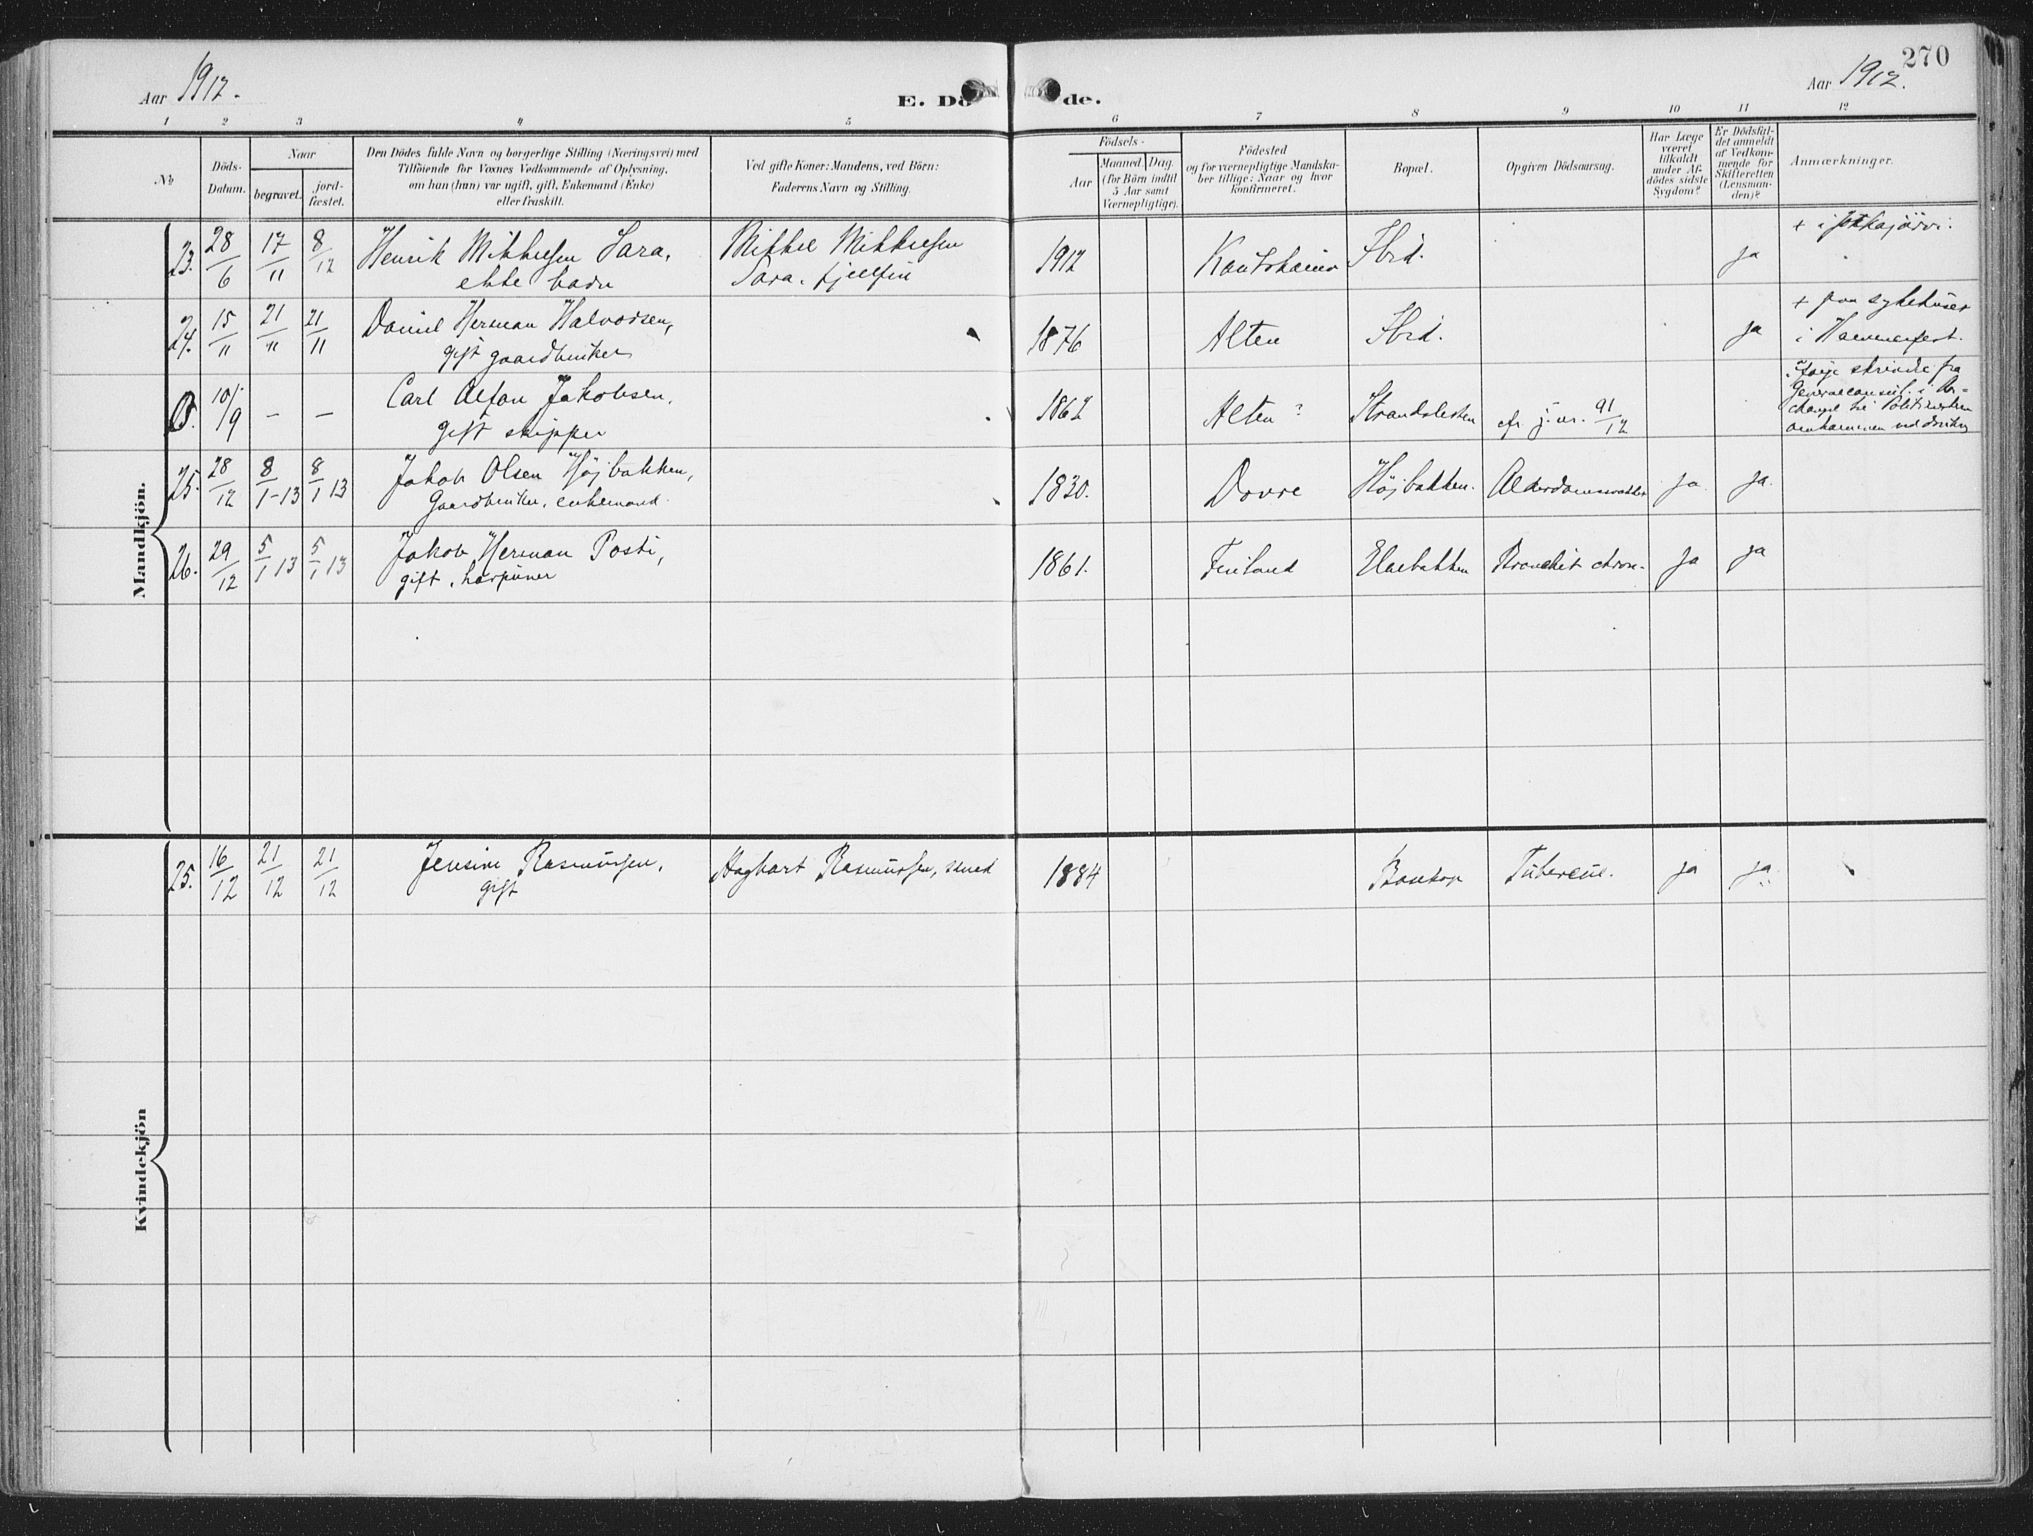 270
Aar 1912.
E. Dö
de.
Aar 1912.
1 2 3 4 5 6 7 8 9 10 11 12
No
Döds-
Datum.
Naar
begravet.
jord-
fæstet.
Den Dödes fulde Navn og borgerlige Stilling (Næringsvei) med
Tilföiende for Voxnes Vedkommende af Oplysning,
om han (hun) var ugift, gift, Enkemand (Enke)
eller fraskilt.
Ved gifte Koner: Mandens, ved Börn:
Faderens Navn og Stilling.
Födsels-
Aar
Maaned.
Dag.
(for Börn indtil
5 Aar samt
Værnepligtige).
Födested
og for værnepligtige Mandska-
ber tillige: Naar og hvor
konfirmeret.
Bopæl.
Opgiven Dödsaarsag.
Har Læge
været
tilkaldt
under Af-
dödes sidste
Sygdom?
Er Dödsfal-
det anmeldt
af Vedkom-
mende for
Skifteretten
(Lensman-
den)?
Anmærkninger.
Mandkjön.
23. 28/6 17/11 8/12 Henrik Mikkelsen Sara, Mikkel Mikkelsen 1912 Kautokeino Ibid. ja + i
ekte barn Sara. fjellfin
24. 15/11 21/11 21/11 Daniel Herman Halvorsen, 1876 Alten Ibid. ja + paa sykehuset
gift gaardbruker i Hammerfest.
10/9 — — Carl Alfon Jakobsen, 1862 Alten? Strandslesten cfr. j. nr. 91/12 Ifølge skrivelse fra
gift skipper
Generalconsul. i Ar-
changel til Politimesteren
omkommen ved
25. 28/12 8/1-13 8/1 13 Jakob Olsen Højbakken, 1830. Dovre Højbakken. ja ja.
Gaardbruker, enkemand.
26. 29/12 5/1 13 5/1 13 Jakob Herman Posti, 1861. Finland Elvebakken Bronchit chron. ja ja
gift, harpuner
Kvindekjön
25. 16/12 21/12 21/12 Jensine Rasmussen, Hagbart Rasmussen, smed 1884 Bossekop Tubercul. ja ja
gift